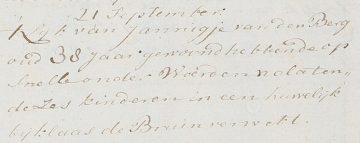 21 September
Lijk van Jannigje van den Berg
oud 38 jaar gewoond hebbende op
Snelle onder Woerden nalaten,
de Zes kinderen in een huwelijk
by klaas de Bruin verwekt.